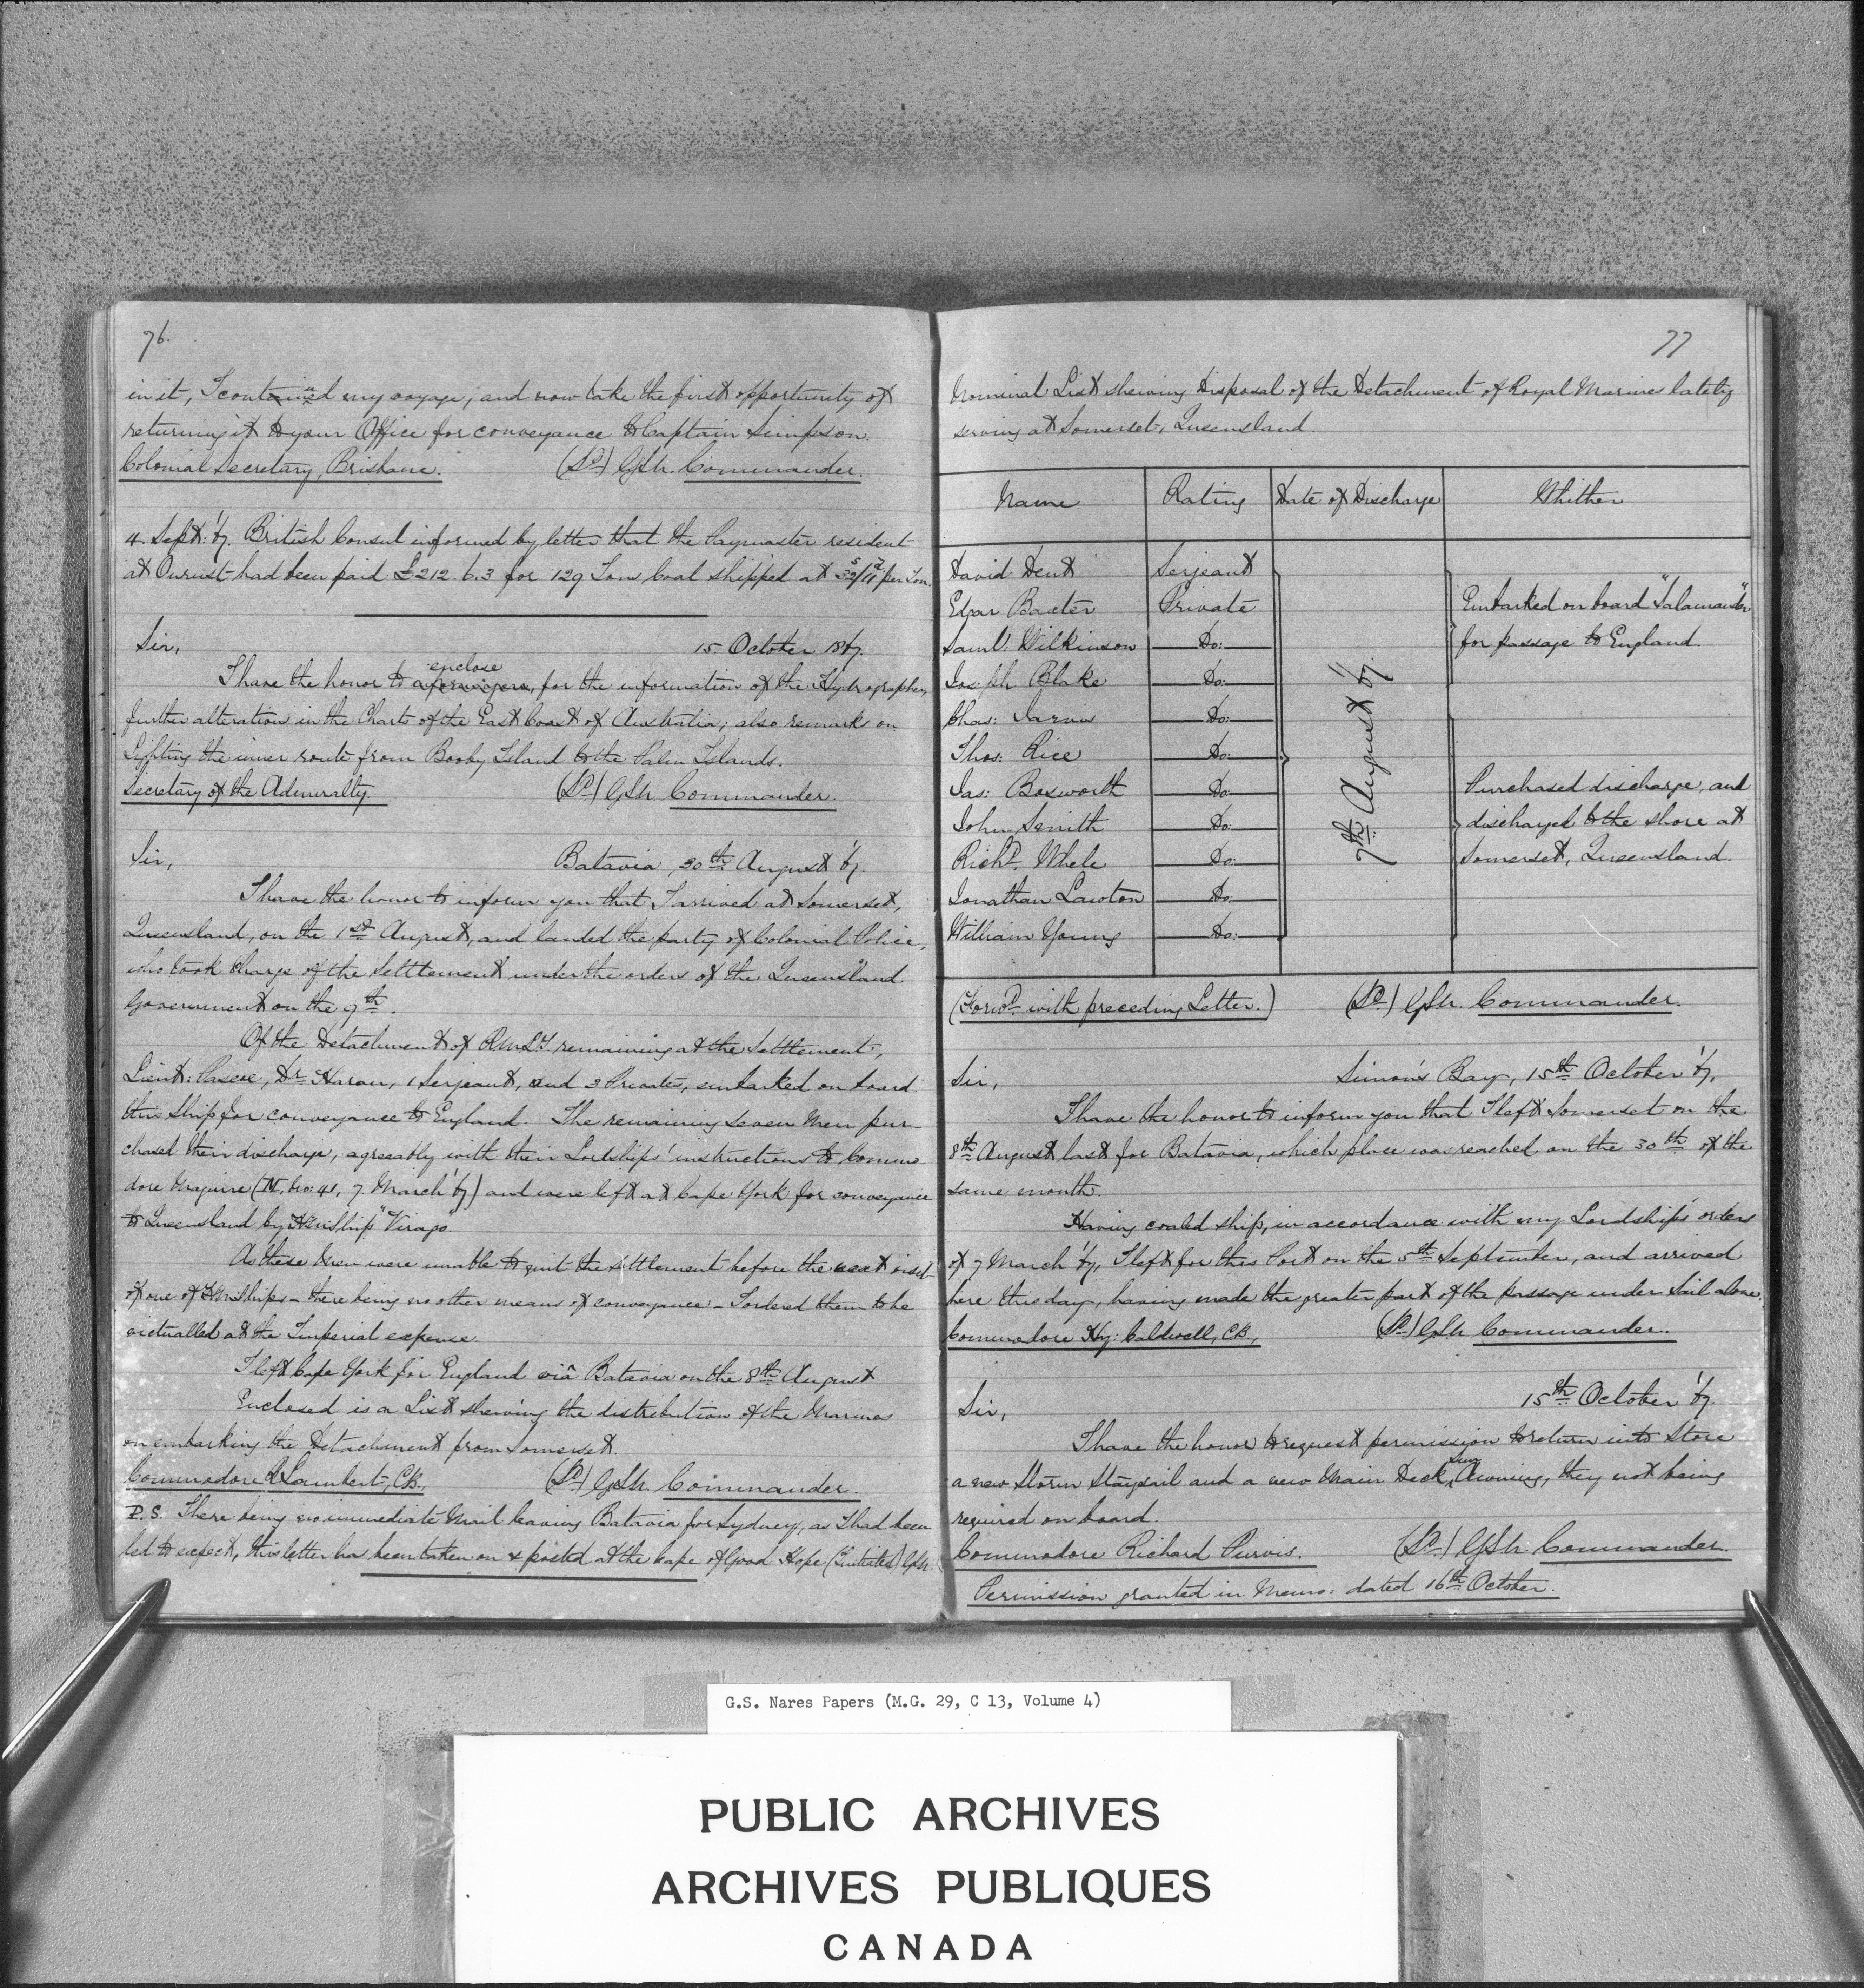 76.
in it, I continued my voyage, and now take the first opportunity of
returning it to your Office for conveyance to Captain Simpson.
Colonial Secretary, Brisbane. (Sd) GSN. Commander.
4. Sept: '67. British Consul informed by letter that the Paymaster resident
at Onrust had been paid £212. 6. 3 for 129 Tons Coal shipped at 32s/11d per Ton.
Sir, 15 October 1867.
I have the honor to enclose, for the information of the Hydrographer,
further alteration in the Charts of the East Coast of Australia; also remarks on
Lighting the inner route from Booby Island to the Palm Islands.
Secretary of the Admiralty. (Sd) GSN. Commander.
Sir, Batavia, 30th August '67.
I have the honor to inform you that I arrived at Somerset,
Queensland, on the 1st August, and landed the party of Colonial Police,
who took charge of the Settlement under the orders of the Queensland
Government on the 9th.
Of the Detachment of RMLI. remaining at the Settlement,
Lieut: Pascoe, Dr. Haran, 1 Serjeant, and 3 Privates, embarked on board
this Ship for conveyance to England. The remaining Seven Men pur-
chased their discharge, agreeably with their Lordships' instructions to Commo
dore Maguire (M, No: 41, 7 March '67) and were left at Cape York for conveyance
to Queensland by HM Ship "Virago"
As these Men were unable to quit the settlement before the next visit
of one of HM Ships - there being no other means of conveyance - I ordered them to be
victualled at the Imperial expense.
I left Cape York for England viâ Batavia on the 8th August
Enclosed is a List shewing the distribution of the Marines
on embarking the Detachment from Somerset.
Commodore R Lambert, CB. (Sd) GSN. Commander.
P.S. There being no immediate Mail leaving Batavia for Sydney, as I had been
led to expect, this letter has been taken on & posted at the Cape of Good Hope (Initialed) GSN.
77
Nominal List shewing Disposal of the Detachment of Royal Marines lately
serving at Somerset, Queensland.
Name Rating Date of Discharge Whither
David Dent Serjeant
Edgar Baxter Private Embarked on board "Salamander"
Saml: Wilkinson Do: for passage to England.
Joseph Blake Do:
Chas: Jarvis Do:
Thos: Rice Do:
7th August '67.
Jas: Bosworth Do: Purchased discharge, and
John Smith Do: discharged to the shore at
Richd. Whele Do: Somerset, Queensland.
Jonathan Lawton Do:
William Young Do:
(Forwd. with preceding Letter.) (Sd) GSN. Commander.
Sir, Simon's Bay, 15th October '67.
I have the honor to inform you that I left Somerset on the
8th August last for Batavia, which place was reached on the 30th of the
same month.
Having coaled ship, in accordance with my Lordships' orders
of 7 March '67, I left for this Port on the 5th September, and arrived
here this day, having made the greater part of the passage under Sail alone.
Commodore Hy: Caldwell, CB, (Sd) GSN Commander.
Sir, 15th October '67.
I have the honor to request permission to return into Store
a new Storm Staysail and a new Main Deck Awning, they not being
required on board.
Commodore Richard Purvis. (Sd) GSN. Commander.
Permission granted in Memo: dated 16th October.
G.S. Nares Papers (M.G. 29, C 13, Volume 4)
PUBLIC ARCHIVES
ARCHIVES PUBLIQUES
CANADA